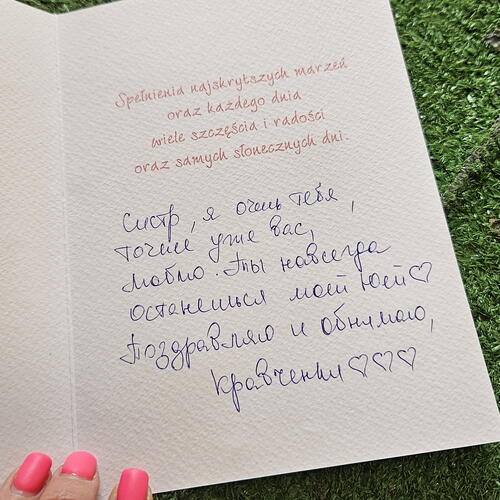 Spełnienia najskrytszych marzeń
oraz każdego dnia
wiele szczęścia i radości
oraz samych słonecznych dni.
Систр, я очень тебя,
точнее уже вас,
люблю. Ты навсегда
останешься моей Юей♡
Поздравляю и обнимаю,
Кравченки♡♡♡